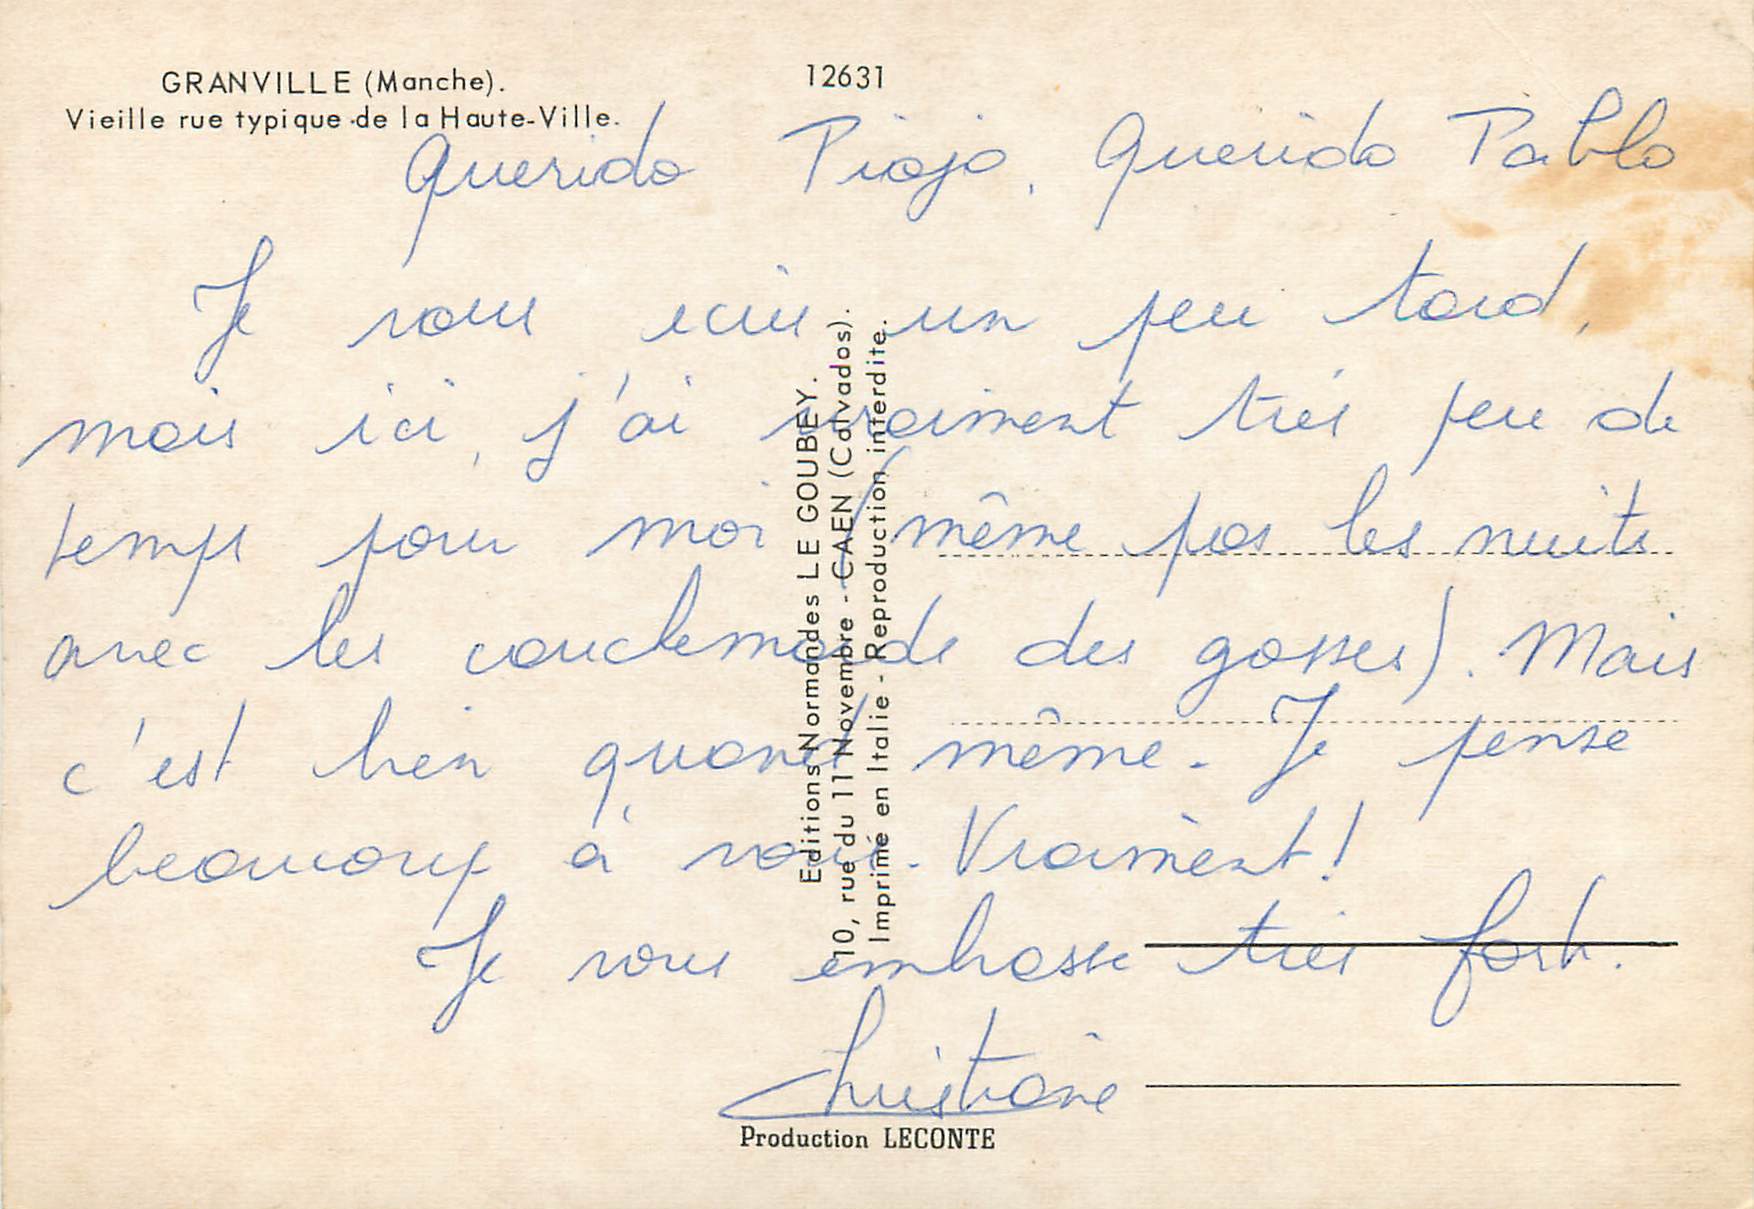 GRANVILLE (Manche).
Vieille rue typique de la Haute-Ville.
12631
Querido Piojo, Querido Pablo
Je vous écris un peu tard,
mais ici, j'ai vraiment très peu de
temps pour moi (même pas les nuits
avec les cauchemards des gosses). Mais
c'est bien quand même. Je pense
beaucoup à vous. Vraiment!
Je vous embrasse très fort.
Christiane
Editions Normandes LE GOUBEY.
10, rue du 11 Novembre - CAEN (Calvados).
Imprimé en Italie - Reproduction interdite.
Production LECONTE